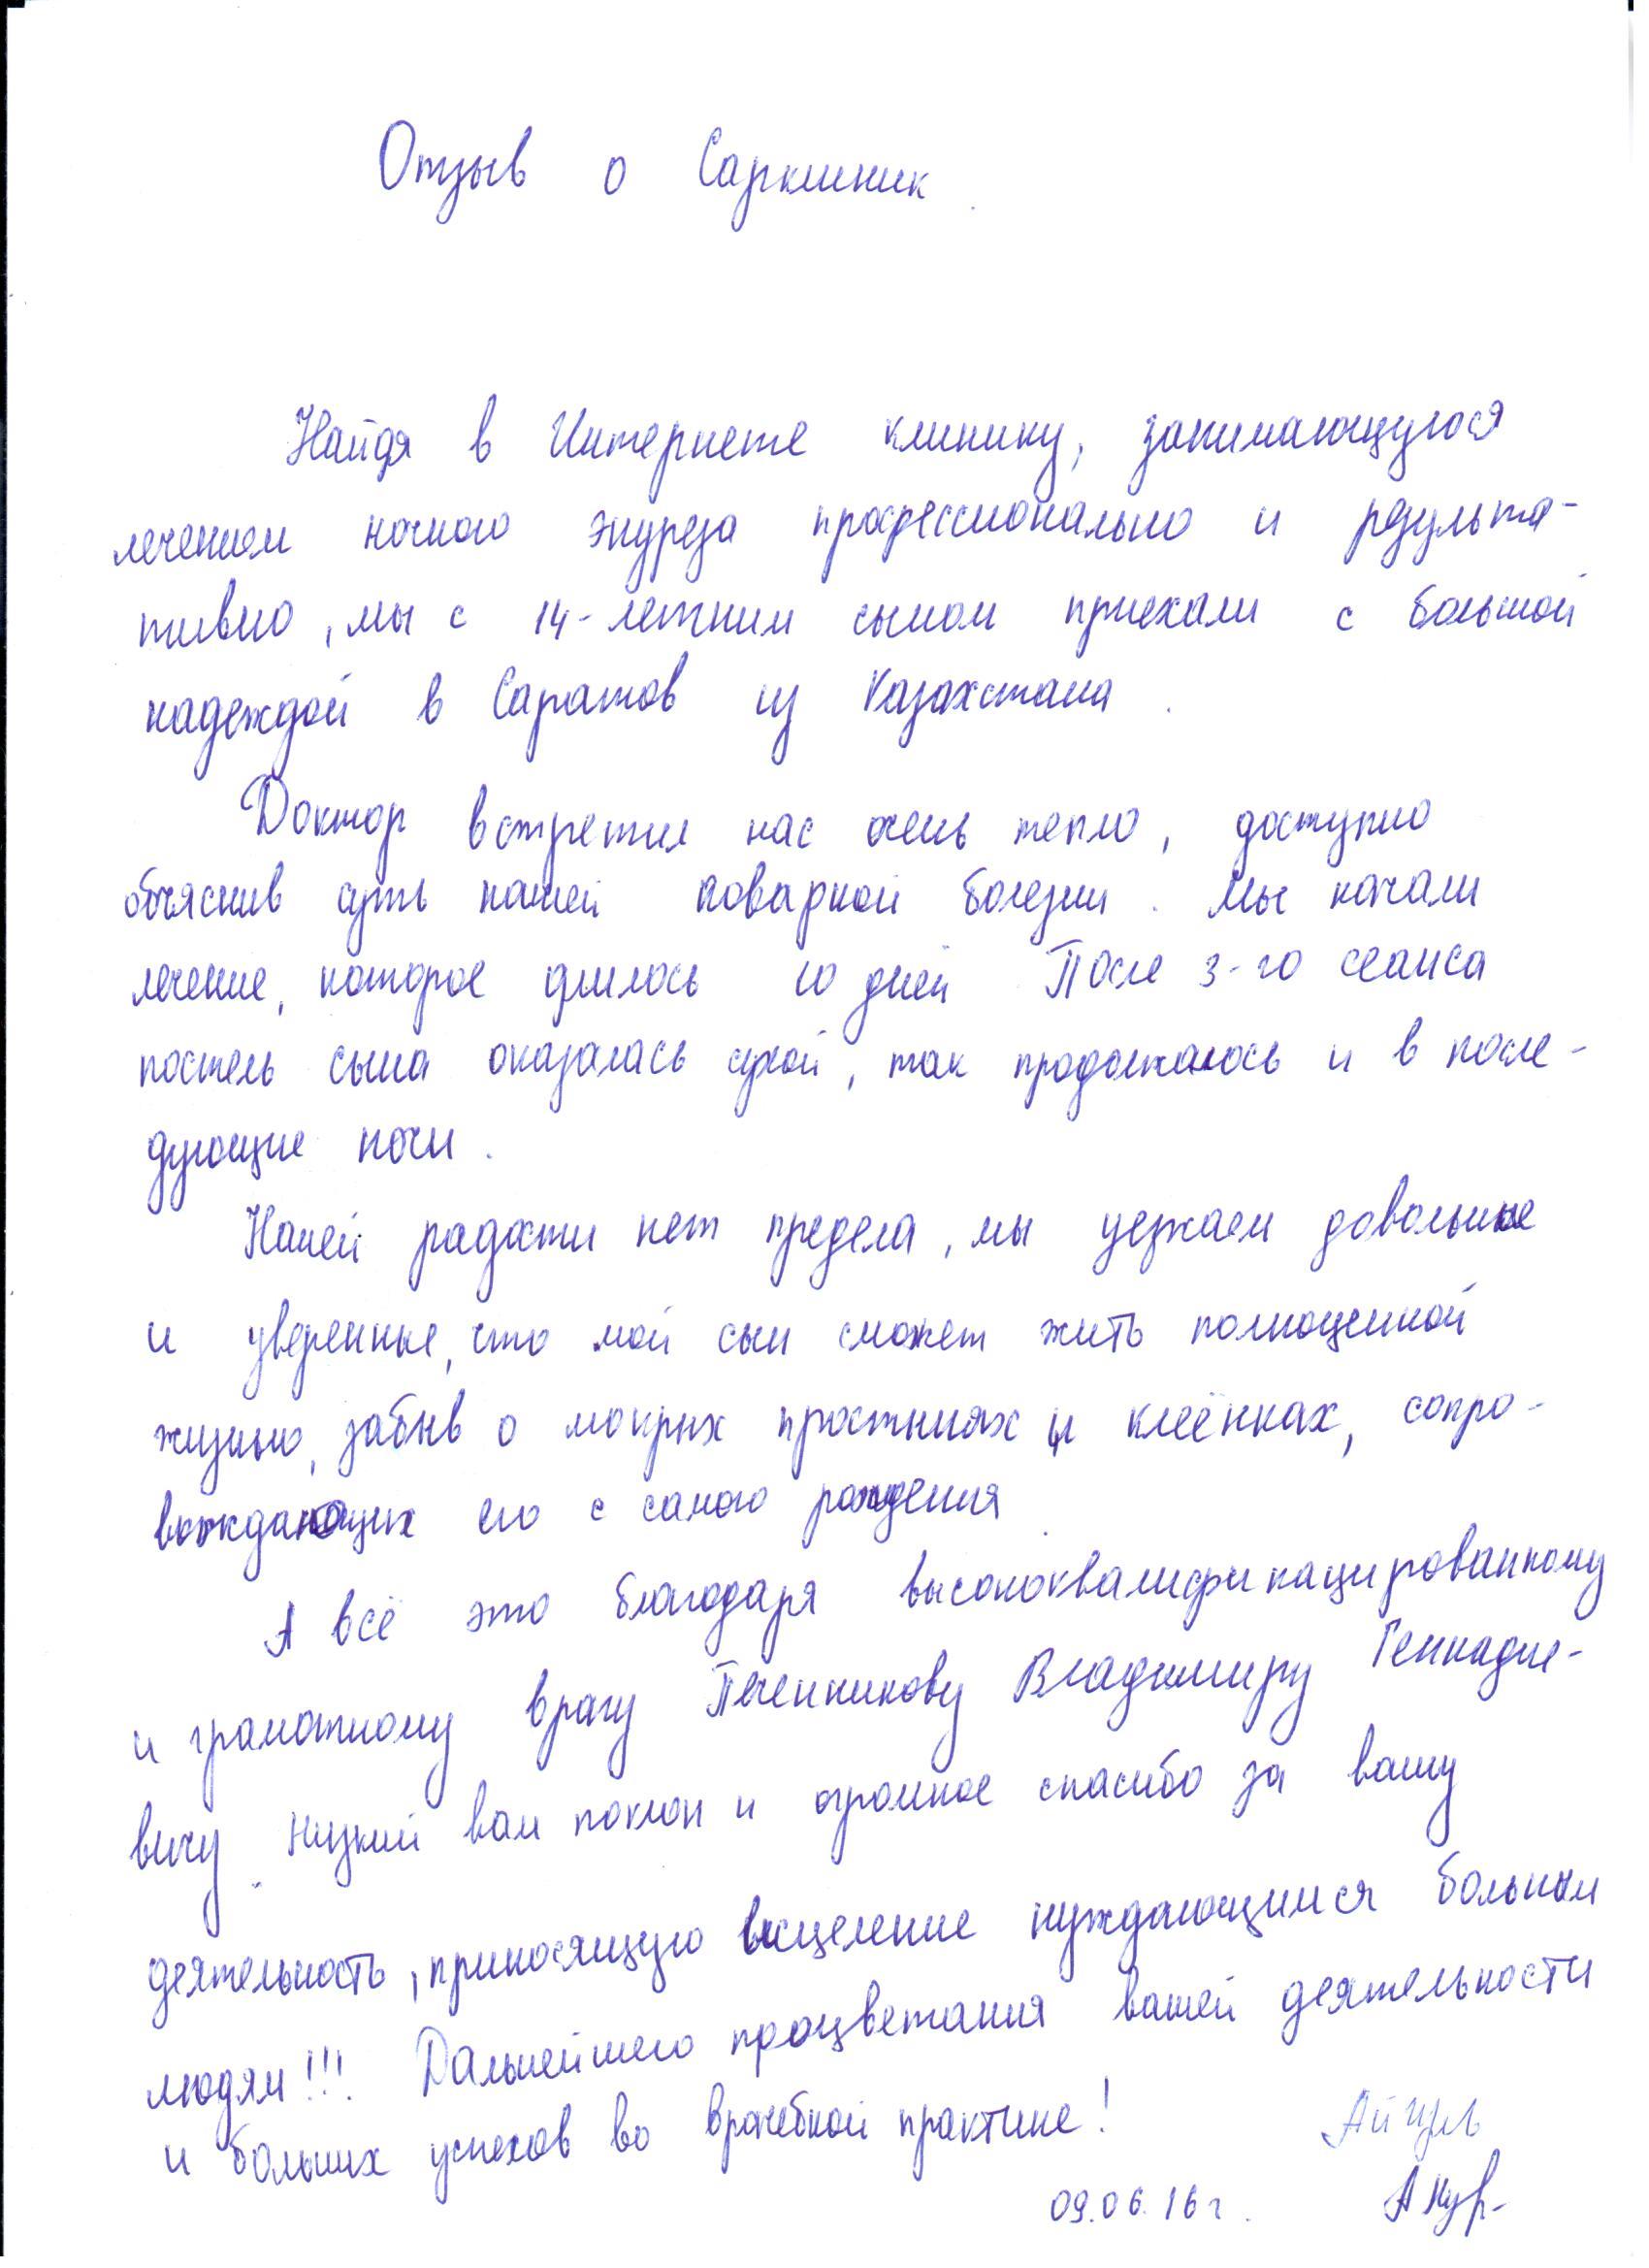 Отзыв о Сарклиник.
Найдя в Интернете клинику, занимающуюся
лечением ночного энуреза профессионально и результа-
тивно, мы с 14-летним сыном приехали с большой
надеждой в Саратов из Казахстана.
Доктор встретил нас очень тепло, доступно
объяснив суть нашей коварной болезни. Мы начали
лечение, которое длилось 10 дней. После 3-го сеанса
постель сына оказалась сухой, так продолжалось и в после-
дующие ночи.
Нашей радости нет предела, мы уезжаем довольные
и уверенные, что мой сын сможет жить полноценной
жизнью, забыв о мокрых простынях и клеёнках, сопро-
вождающих его с самого рождения.
А всё это благодаря высококвалифицированному
и грамотному врачу Печенникову Владимиру Геннадие-
вичу. Низкий вам поклон и огромное спасибо за вашу
деятельность, приносящую исцеление нуждающимся больным
людям!!! Дальнейшего процветания вашей деятельности
и больших успехов во врачебной практике!
Айгуль
09.06.16 г.